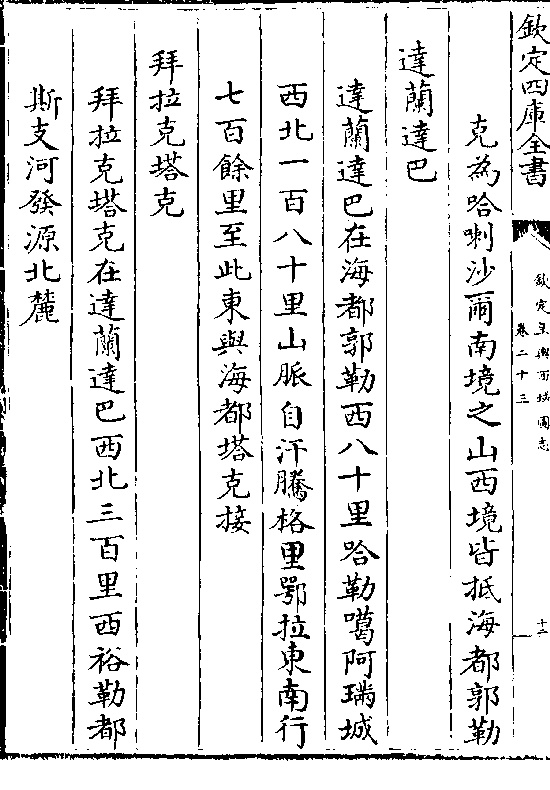 欽定四庫全書
欽定皇輿西域圖志
卷二十三
十二
克為哈喇沙爾南境之山西境皆抵海都郭勒
達蘭達巴
達蘭達巴在海都郭勒西八十里哈勒噶阿璊城
西北一百八十里山脈自汗騰格里鄂拉東南行
七百餘里至此東與海都塔克接
拜拉克塔克
拜拉克塔克在達蘭達巴西北三百里西裕勒都
斯支河發源北麓